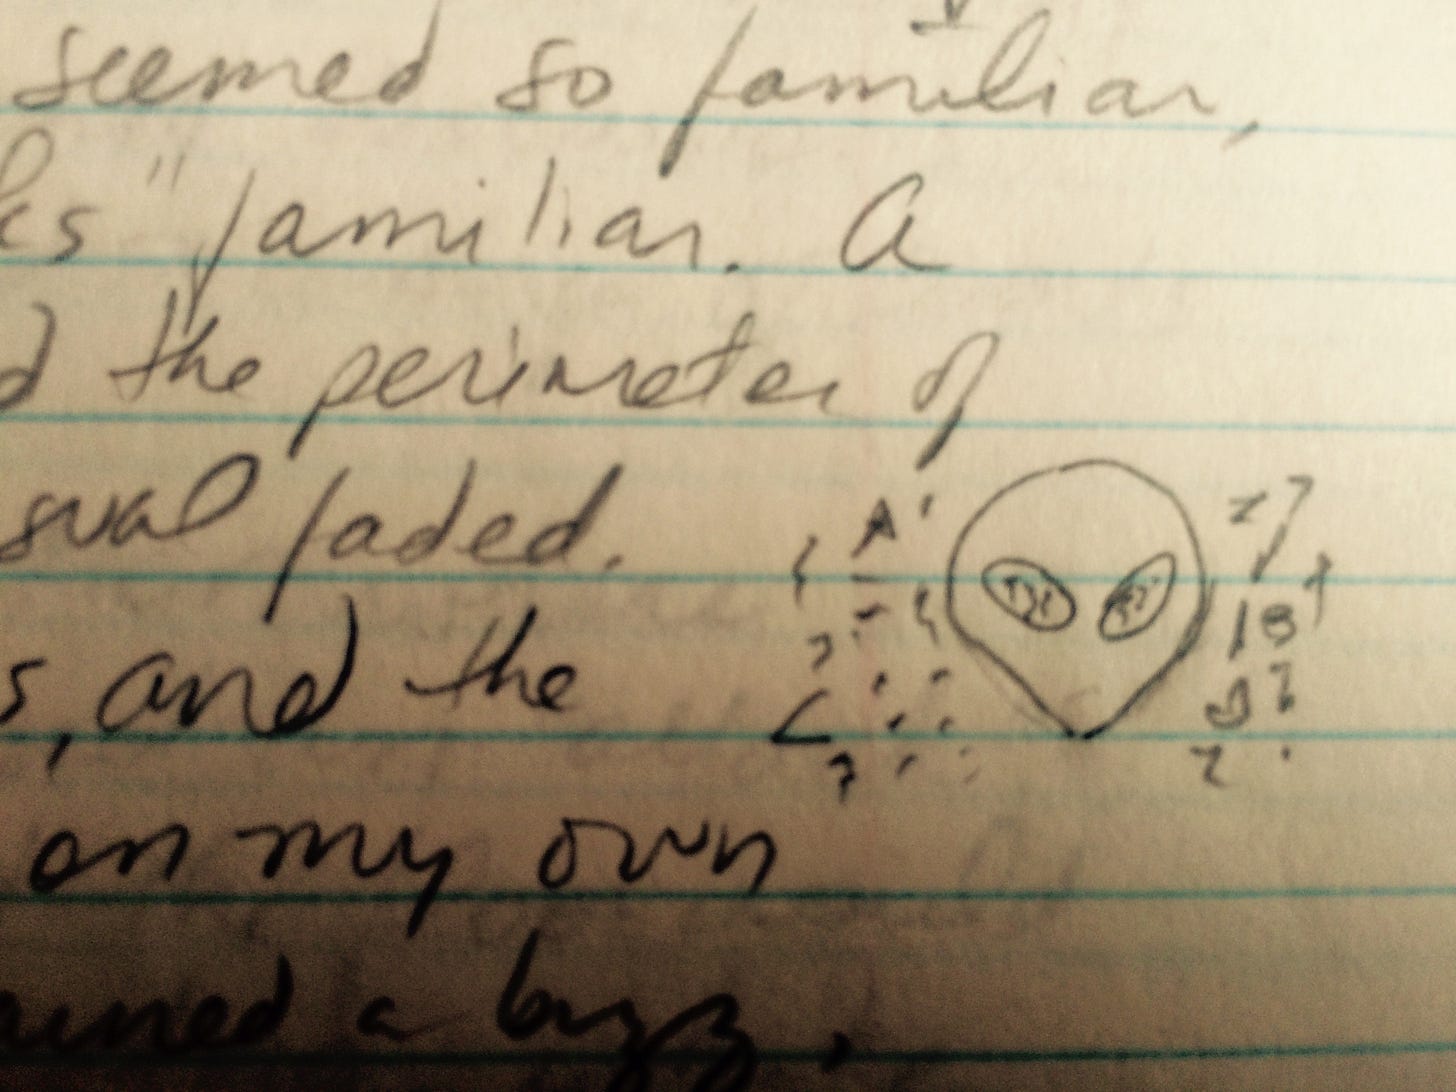 seemed so familiar,
ks "familiar. A
d the perimeter of
sual faded.
s, and the
on my own
a buzz,